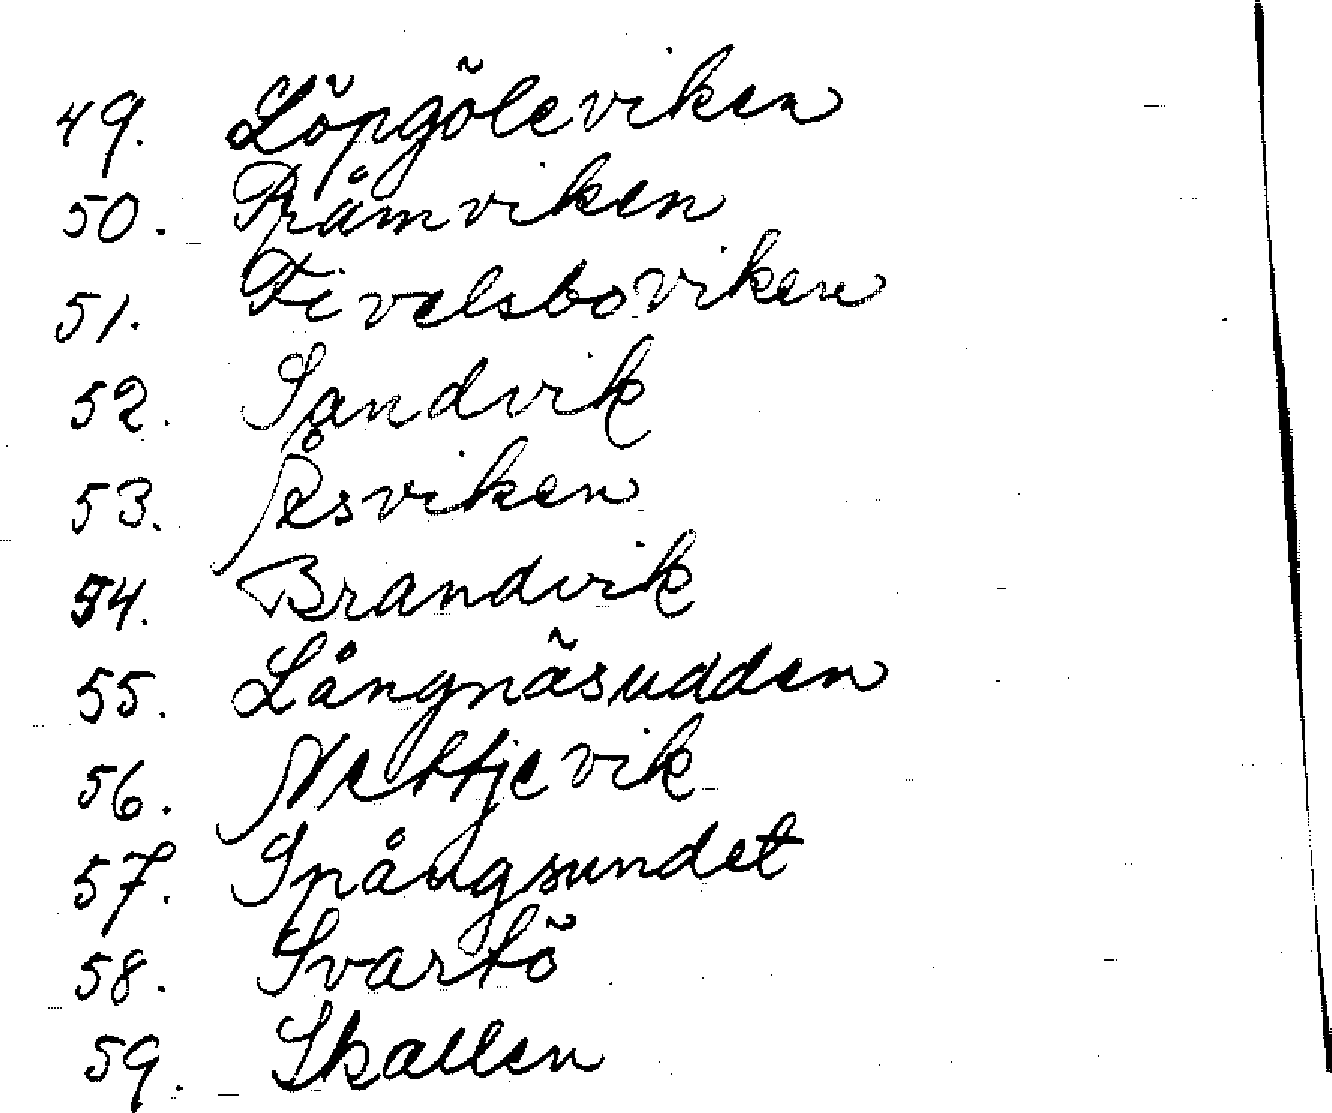 49. Löpgöleviken
50. Pråmviken
51. Fivelsboviken
52. Sandvik
53. Åsviken
54. Brandvik
55. Långnäsudden
56. Nettjevik
57. Spångsundet
58. Svartö
59. Skallen